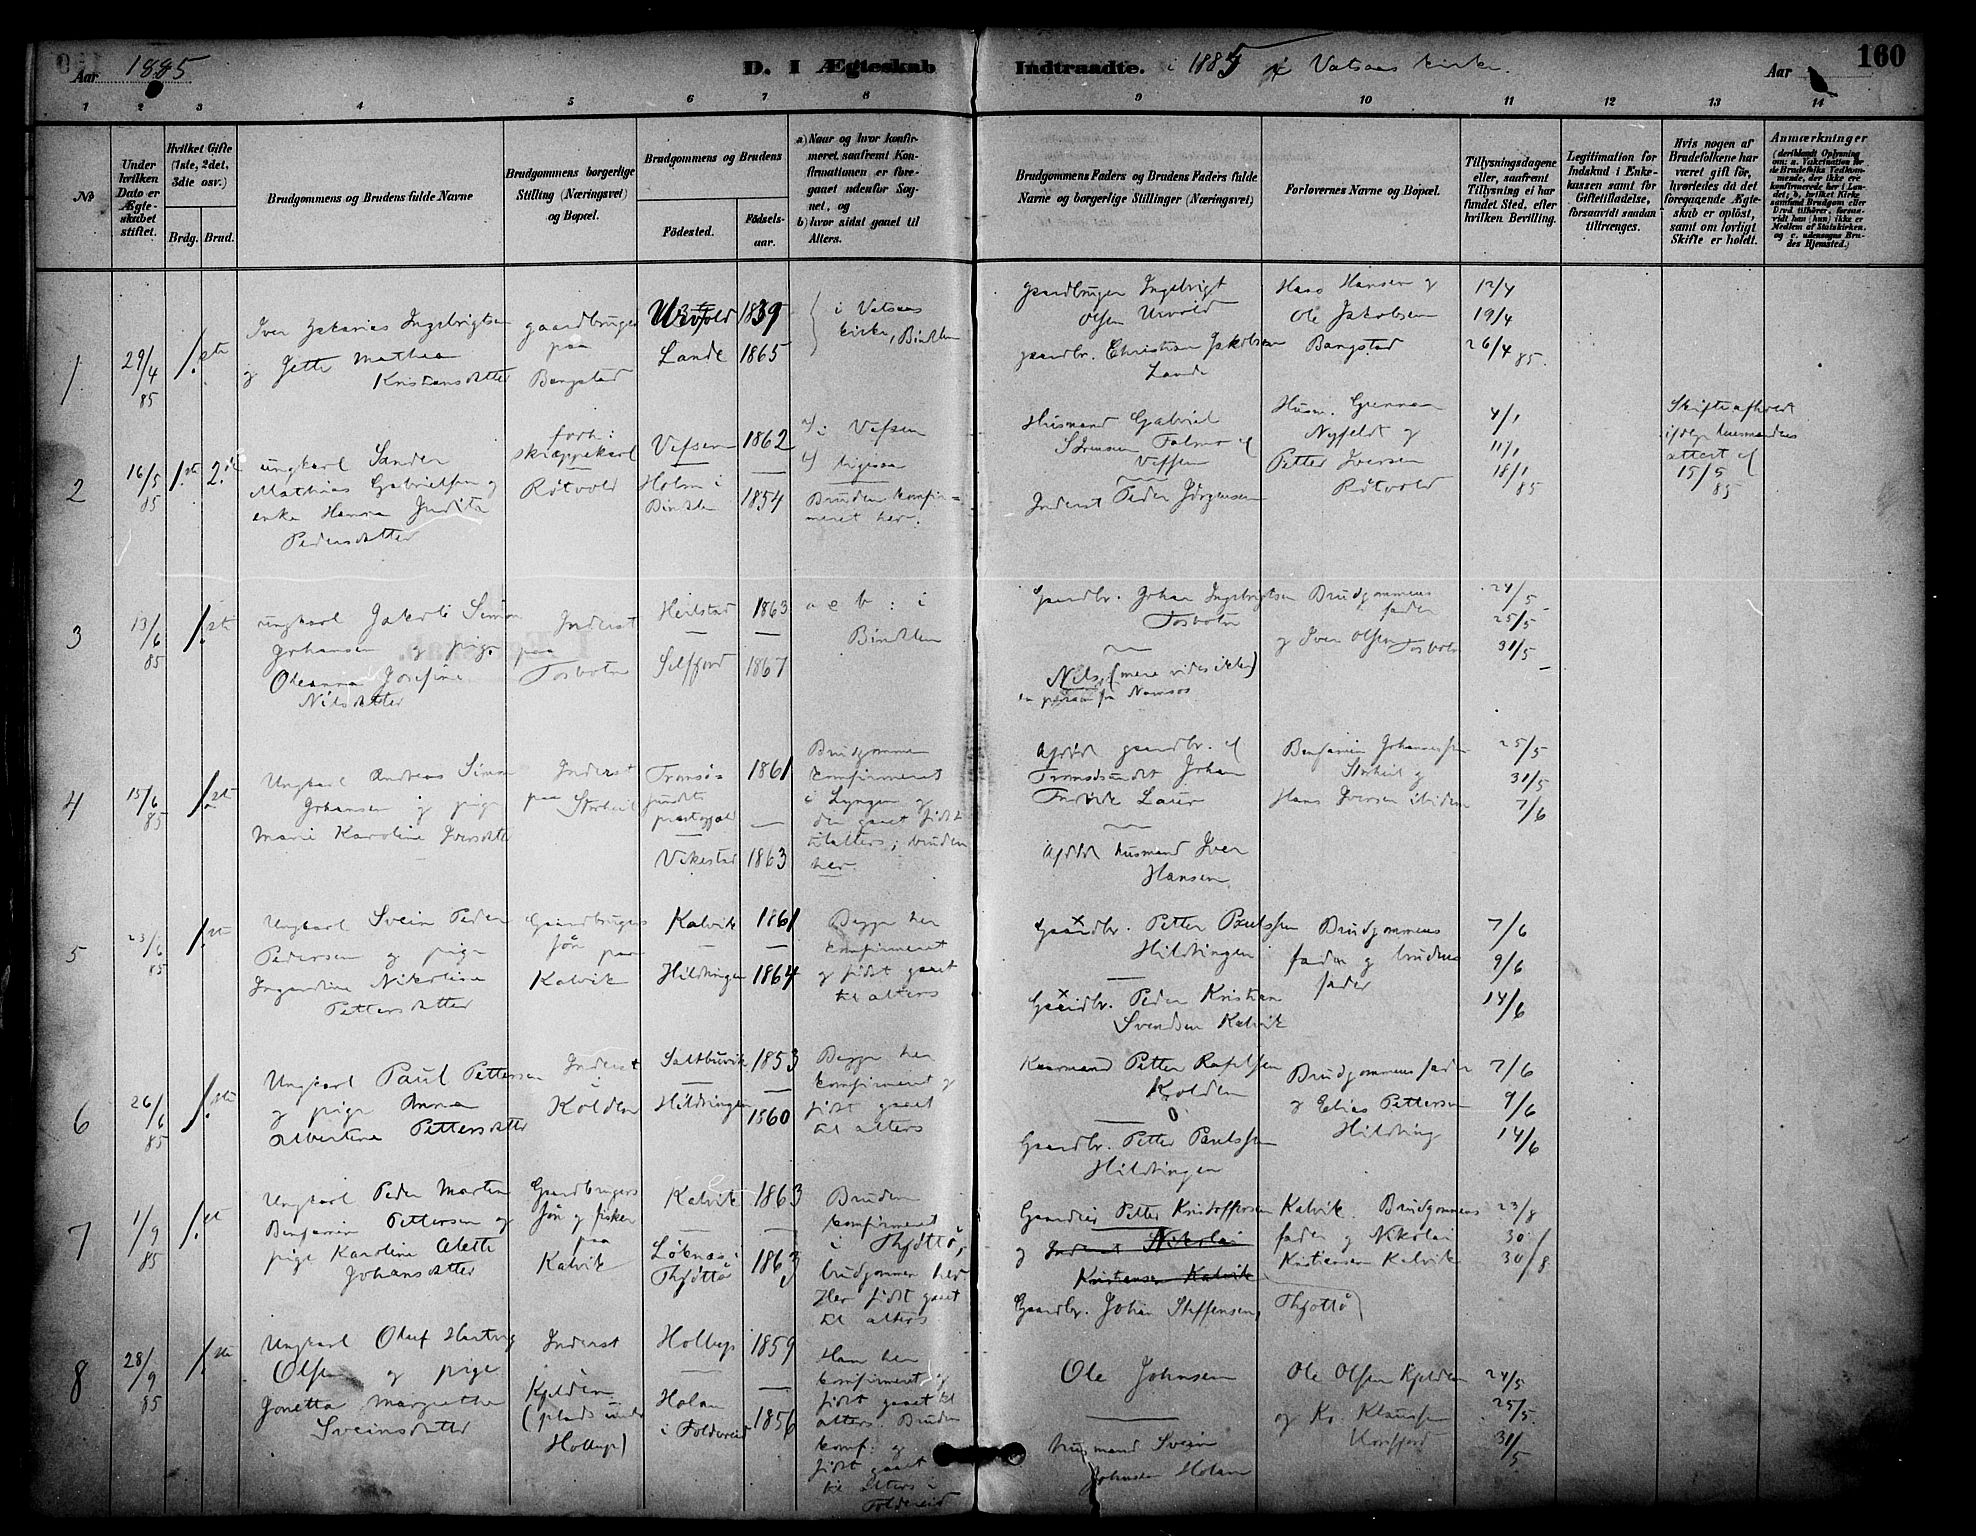 Aar 1885
D. I Ægteskab Indtraadte. i 1885 i Vatsaas kirke.
Aar
160
1 2 3 4 5 6 7 8 9 10 11 12 13 14
№
Under hvilken Dato er Ægteskabet stiftet.
Hvilket Gifte (1ste, 2det, 3die osv.)
Brdg. Brud.
Brudgommens og Brudens fulde Navne
Brudgommens borgerlige Stilling (Næringsvei) og Bopæl.
Brudgommens og Brudens
Fødested.
Fødselsaar.
a) Naar og hvor konfirmeret, saafremt Konfirmationen er foregaaet udenfor Sognet, og
b) hvor sidst gaaet til Alters.
Brudgommens Faders og Brudens Faders fulde Navne og borgerlige Stillinger (Næringsvei)
Forlovernes Navne og Bopæl.
Tillysningsdagene eller, saafremt Tillysning ei har fundet Sted, efter hvilken Bevilling.
Legitimation for Indskud i Enkekassen samt for Giftetilladelse, forsaavidt saadan tiltrænges.
Hvis nogen af Brudefolkene har været gift før, hvorledes da det foregaaende Ægteskab er opløst, samt om lovligt Skifte er holdt.
Anmærkninger
1
29/4 85
1 ste
Iver Zakarias Ingebrigtsen
og Jette Mathea
Kristensdatter
gaardbruger
paa
Bangstad
Urvold 1839
Lande 1865
i Vatsaas
kirke, Bindalen
gaardbruger Ingebrigt
Olsen Urvold
gaardbr. Christian Jakobsen
Lande
Hans Hansen og
Ole Jakobsen
Bangstad
12/4
19/4
26/4 85.
2
16/5 85
1. ste 2.
ungkarl Sander
Mathias Gabrielsen og
enke Hanna Judit
Pedersdatter
forh:
skræppekarl
Røtvold
Vefsen 1862
Holm i
Bindalen 1854
a) i Vefsen
b) ligesaa
Bruden konfirmeret
her.
Husmand Gabriel
Sørensen
Vefsen
Inderst Peder Jørgensen
Husm.
Nyfeldt og
Petter Iversen
Røtvold
4/1
11/1
18/1 85
Skifte afholdt
ifølge husmandens
attest af
15/5 85
3
13/6 85
1 ste
ungkarl Jakob Simon
Johansen og pige
Oleanna Josefine
Nilsdatter
Inderst
paa
Tosbotn
Heilstad 1863
Selfjord 1867
a & b : i
Bindalen
Gaardbr. Johan Ingebrigtsen
Tosbotn
Nils, (mere vides ikke)
en person fra Namsos
Brudgommens
fader
og Iver Olsen Tosbotn
24/5
25/5
31/5
4
15/6 85
1 ste
Ungkarl Andreas Simon
Johansen og pige
Marie Karoline Iversdatter
Inderst
paa Storheil
Tromsøsundets
præstegjæld 1861
Vikestad 1863
Brudgommen
konfirmeret
i Lyngen og
der gaaet sidst
til alters; bruden
her.
Afdød gaardbr. af
Tromsøsundet Johan
Fredrik Laur
Afdød husmand Iver
Hansen
Benjamin Johannessen
Storheil og
Hans Iversen ibidem
25/5
31/5
7/6
5
23/6 85
1 ste
Ungkarl Svein Peder
Pedersen og pige
Ingardine Nikoline
Pettersdatter
Gaardbrugers
søn paa
Kalvik
Kalvik 1861
Hildringen 1864
Begge her
konfirmeret
og sidst gaaet
til alters
Gaardbr. Petter Paulssen
Hildringen
Gaardbr. Peder Kristian
Svendsen Kalvik
Brudgommens
fader og brudens
fader
7/6
9/6
14/6
6
26/6 85
1 ste
Ungkarl Paul Pettersen
og pige Anna
Albertine Pettersdatter
Inderst
i
Kolden
Saltbuvik 1853
Hildringen 1860
Begge her
konfirmeret og
sidst gaaet
til alters
Kaarmand Petter Rafelsen
Kolden
Gaardbr. Petter Paulssen
Hildringen
Brudgommens fader
og Elias Pettersen
Hildring
7/6
9/6
14/6
7
1/9 85
1. ste
Ungkarl Peder Martin
Benjamin Pettersen og
pige Karoline Alette
Johansdatter
Gaardbrugers
søn og fisker
paa
Kalvik
Kalvik 1863
Løknæs i
Thjøttø 1863
Bruden
konfirmeret
i Thjøttø,
brudgommen her
Her sidst gaaet
til alters
Gaardeier Petter Kristoffersen Kalvik.
og Inderst Nikolai
Kristiansen Kalvik
Gaardbr. Johan Steffensen, Thjøttø
Brudgommens
fader og Nikolai
Kristiansen Kalvik
23/8
30/
30/8
8
28/9 85
1. ste
Ungkarl Oluf Hartvig
Olsen og pige
Jonetta Margrethe
Sveinsdatter
Inderst
Kjelden
(plads under
Hollup)
Hollup 1859
Holan
i Foldereid 1856
Han her
konfirmeret og
sidst gaaet til
alters. Bruden
konf: og
sidst gaaet
til alters i
Foldereid
Ole Johnsen
husmand Svein
Johnsen Holan
Ole Olsen Kjelden
og Kr. Klaussen
24/5
25/5
31/5